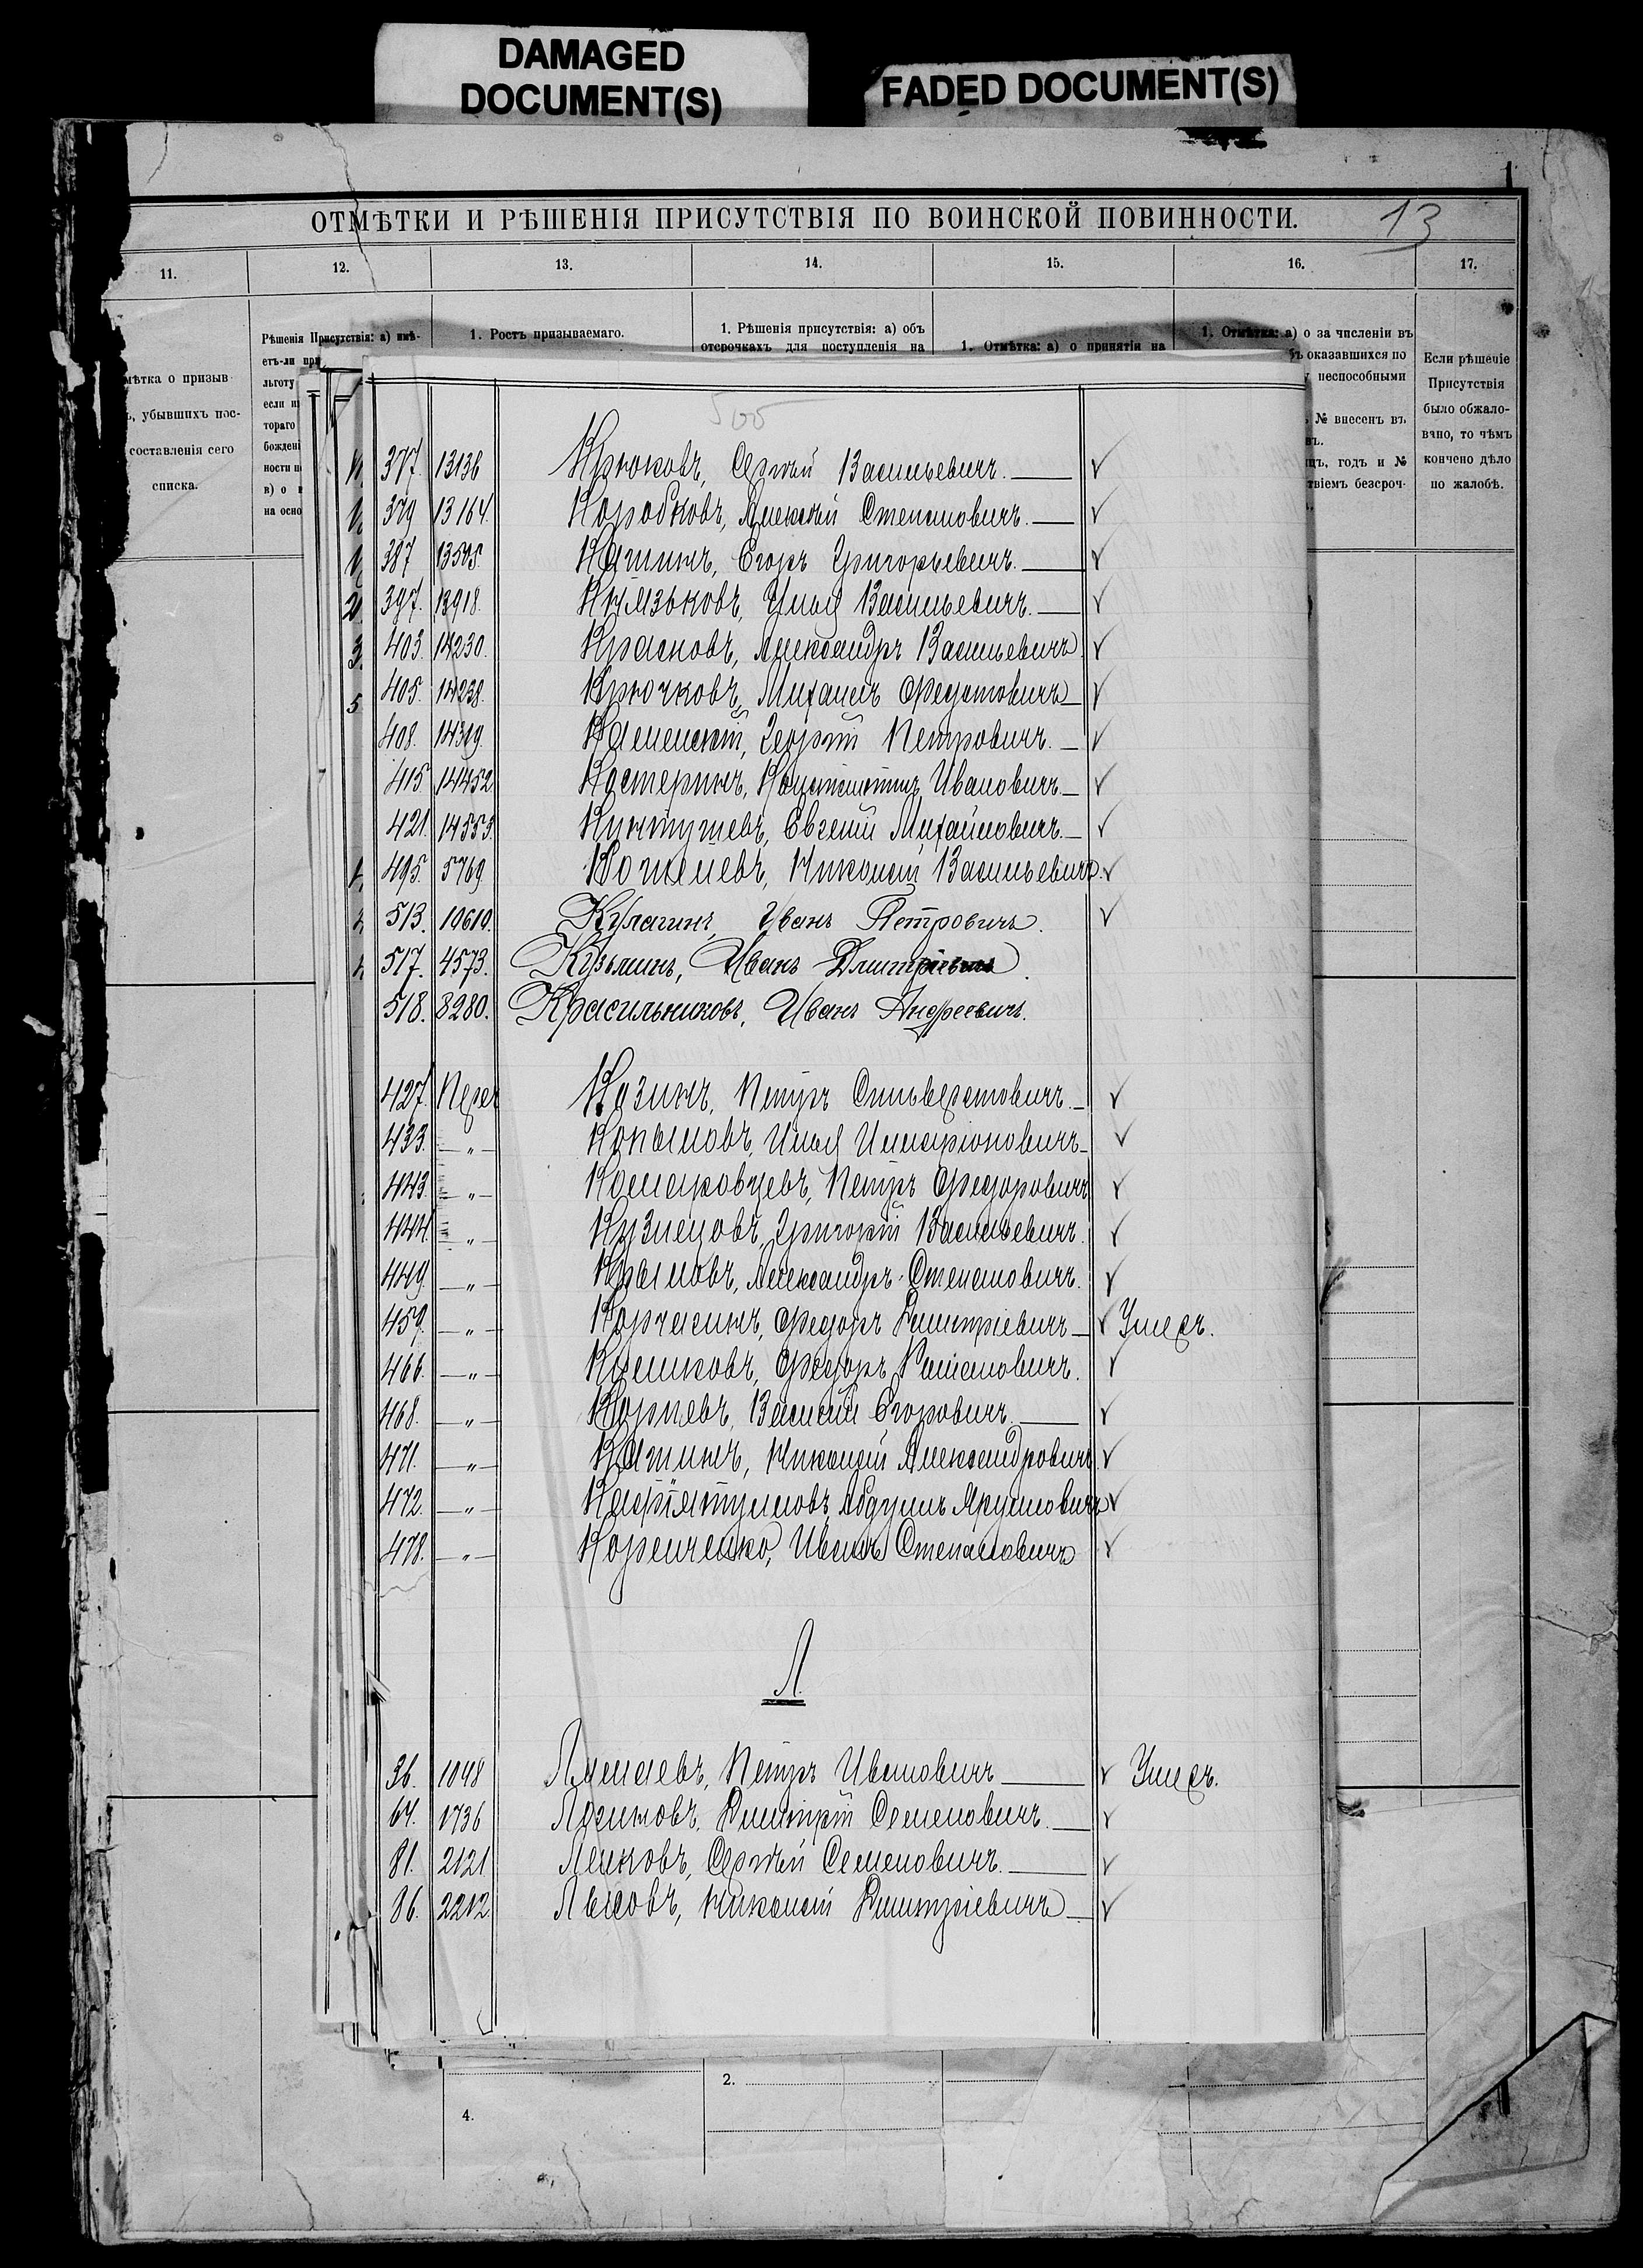 DAMAGED
DOCUMENT(S)
FADED DOCUMENT(S)
ОТМѢТКИ И РѢШЕНІЯ ПРИСУТСТВІЯ ПО ВОИНСКОЙ ПОВИННОСТИ.
13
11. 12. 13. 14. 15. 16. 17.
мѣтка о призыв
убывшихъ пос-
составленія сего
списка.
Рѣшенія Присутствія: а) имѣ-
етъ-ли при
льготу
если
тораго
божден
ности
в) о
на осно
1. Ростъ призываемаго.
1. Рѣшенія присутствія: а) объ
отсрочкахъ для поступленія на
1. Отмѣтка: а) о принятіи на
1. Отмѣтка: а) о зачисленіи въ
оказавшихся по
неспособными
№ внесенъ въ
годъ и №
твіемъ безсроч-
Если рѣшеніе
Присутствія
было обжало-
вано, то чѣмъ
кончено дѣло
по жалобѣ.
377. 13136 Крюковъ, Сергѣй Васильевичъ. ✓
379 13164. Коробковъ, Алексѣй Степановичъ. ✓
387 13505. Кашинъ, Егоръ Григорьевичъ. ✓
397. 13918. Князьковъ, Илья Васильевичъ. ✓
403. 14230. Красновъ, Александръ Васильевичъ ✓
405. 14238. Крючковъ, Михаилъ Федотовичъ ✓
408. 14319. Каменскій, Георгій Петровичъ. ✓
415. 14452 Костеринъ, Константинъ Ивановичъ ✓
421. 14553. Кунтушевъ, Евгеній Михайловичъ. ✓
495. 5769 Кошелевъ, Николай Васильевичъ. ✓
513. 10610. Кулагинъ, Иванъ Петровичъ. ✓
517. 4573. Кузьминъ, Иванъ Дмитріевичъ.
518. 8280. Красильниковъ, Иванъ Андреевичъ.
427. Перег Казинъ, Петръ Сильверстовичъ. ✓
433. — „ — Копыловъ, Илья Илларіоновичъ ✓
443. — „ — Комаровцевъ, Петръ Федоровичъ ✓
444. — „ — Кузнецовъ, Григорій Васильевичъ. ✓
449. — „ — Крыловъ, Александръ Степановичъ. ✓
459. — „ — Корчагинъ, Федоръ Дмитріевичъ ✓ Умеръ.
466. — „ — Климковъ, Федоръ Романовичъ. ✓
468. — „ — Корневъ, Василій Егоровичъ. ✓
471. — „ — Кашинъ, Николай Александровичъ ✓
472. — „ — Абдулъ ✓
478. — „ — Коренченко, Иванъ Степановичъ ✓
Л
36. 1048 Ламаевъ, Петръ Ивановичъ ✓ Умеръ.
64. 1736 Логиновъ, Дмитрій Семеновичъ. ✓
81. 2121 Ленковъ, Сергѣй Семеновичъ. ✓
86. 2212 Лысовъ, Николай Дмитріевичъ ✓
2.
4.